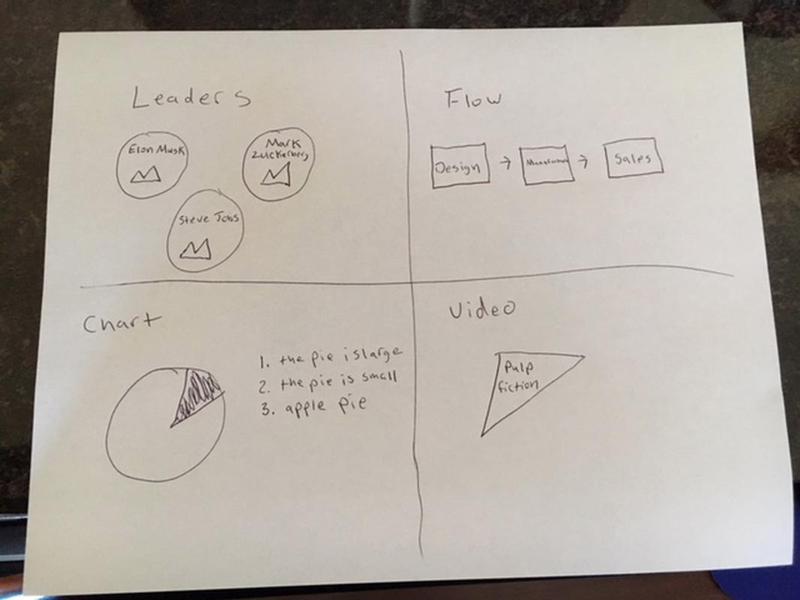 Leaders
Elon Musk
Mark
Zuckerberg
Steve Jobs
Flow
Design
Sales
Chart
1. the pie is large
2. the pie is small
3. apple pie
Video
Pulp
fiction